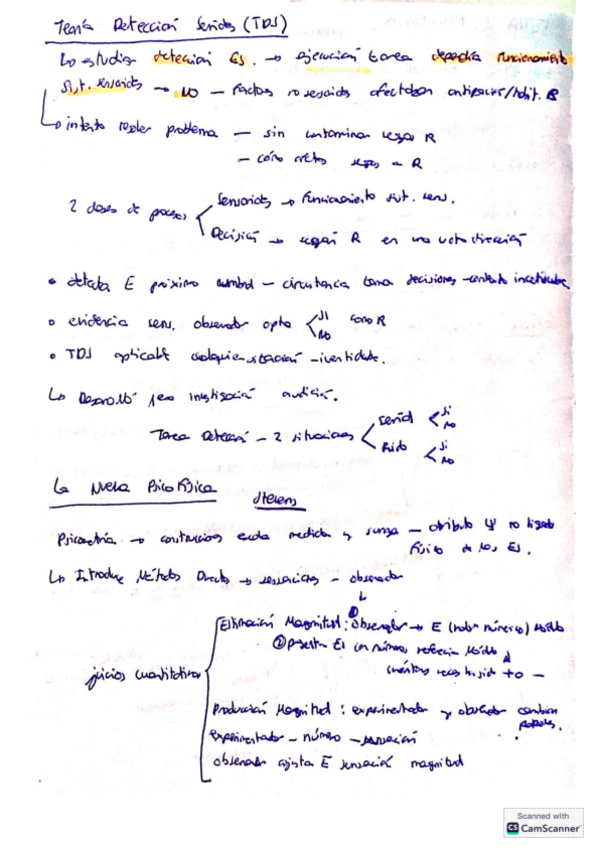 Teoría Detección Señales (TDS)
Lo estudios detección Es. → ejecución tarea dependía funcionamiento
Sist. sensorial → no – factores no sensoriales afectaban
→ intento resolver problema – sin contaminar sesgos R
– cómo sesgos R
2 clases de procesos
Sensoriales → funcionamiento sist. sens.
Decisión → R en una u otra dirección
• detectar E próximo umbral – circunstancia toma decisiones – contexto incertidumbre
• evidencia sens. observador opta
SI
NO
como R
• TDS aplicable cualquier situación – incertidumbre.
↳ Desarrolló para investigación audición.
Tarea Detección – 2 situaciones
señal
Si
No
Ruido
Si
No
La Nueva Psicofísica
Stevens
Psicometría → construcción escala medida y – atributo Ψ no ligado
físico de los Es.
↳ Introduce Métodos Directos → sensaciones – observador
↓
juicios cuantitativos
Estimación Magnitud: ① observador → E (valor numérico) Módulo
② presentan Es con números referencia Módulo
cuántas veces + o –
Producción Magnitud: experimentador y observador cambian
papeles.
experimentador – número – sensación
observador ajusta E sensación magnitud
Scanned with
CS CamScanner